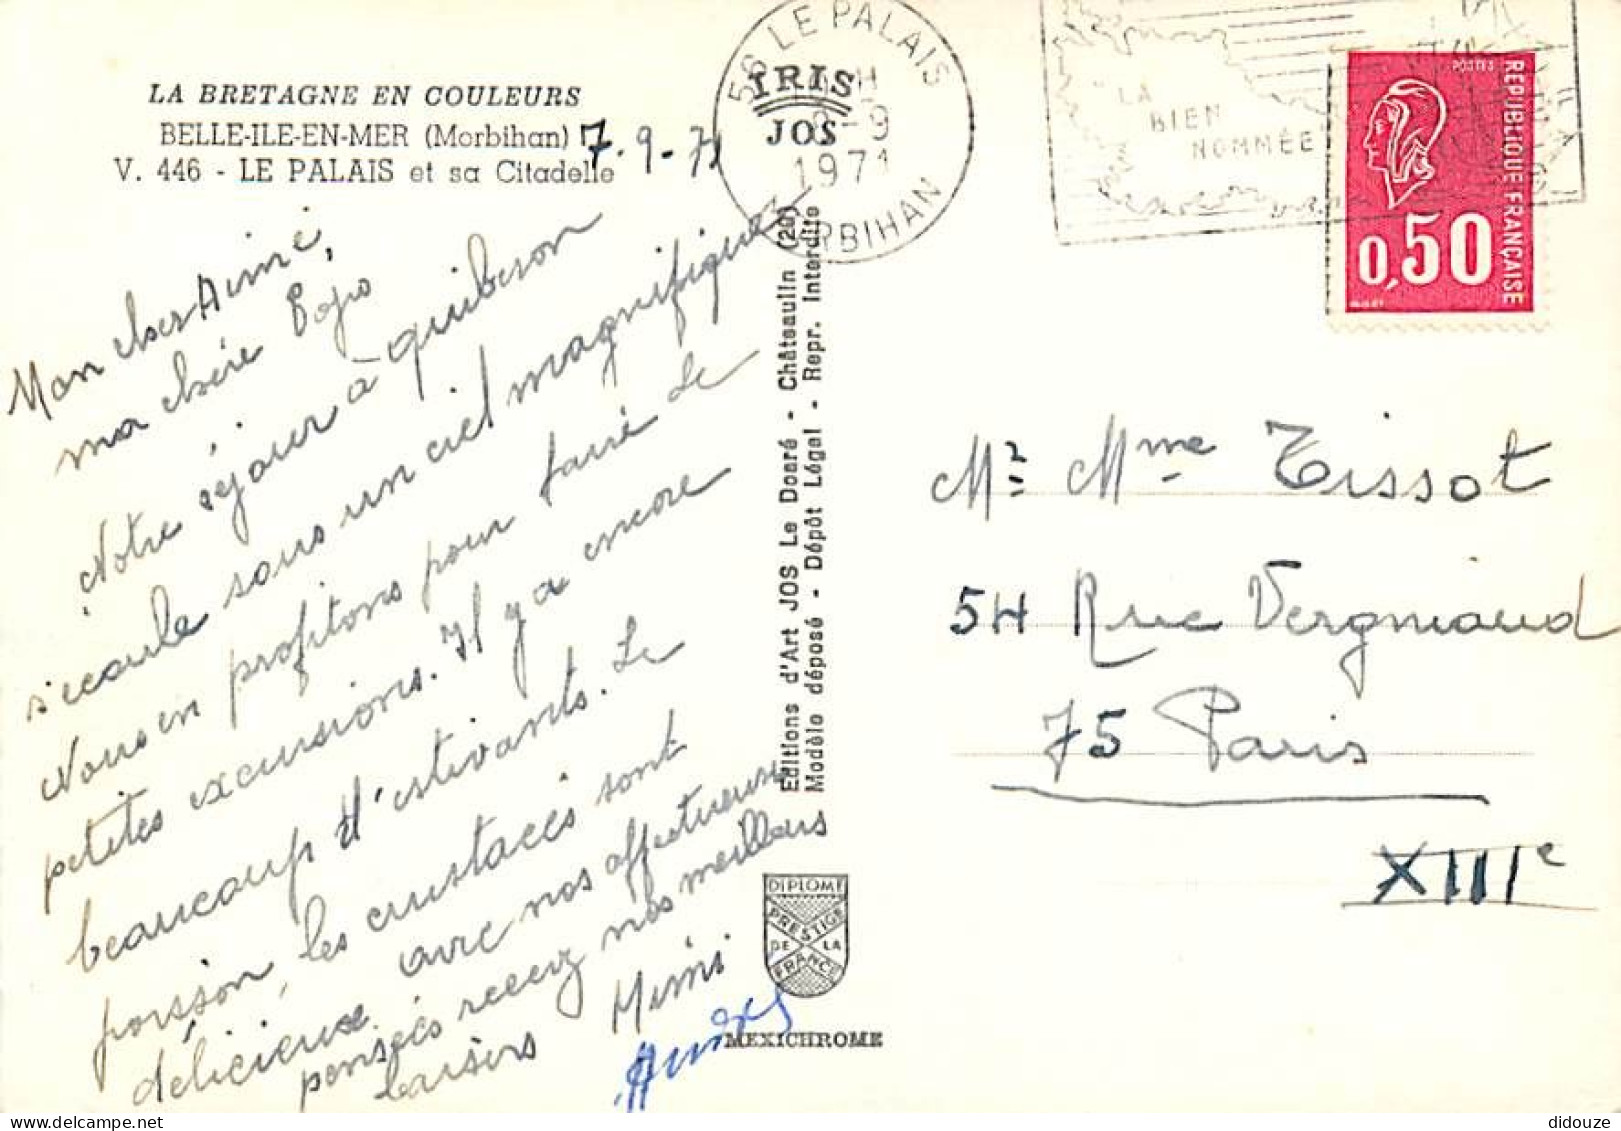 LA BRETAGNE EN COULEURS
BELLE-ILE-EN-MER (Morbihan)
V. 446 - LE PALAIS et sa Citadelle
7.9.71
Mon cher Aimé,
ma chère Popo
Notre séjour à quiberon
s'écoule sous un ciel magnifique
Nous en profitons pour faire de
petites excursions. Il y a encore
beaucoup d'estivants. Le
poisson, les crustacés sont
délicieux. avec nos affectueuses
pensées recevez nos meilleurs
baisers Mimi
IRIS
JOS
56 LE PALAIS
8-9
1971
MORBIHAN
"LA
BIEN
NOMMÉE
POSTES
REPUBLIQUE FRANÇAISE
0,50
Editions d'Art JOS Le Doaré - Châteaulin (29)
Modèle déposé - Dépôt Légal - Repr. Interdite
DIPLOME
PRESTIGE
DE LA
FRANCE
MEXICHROME
Mr Mme Tissot
54 Rue Vergniaud
75 Paris
XIIIe
didouze